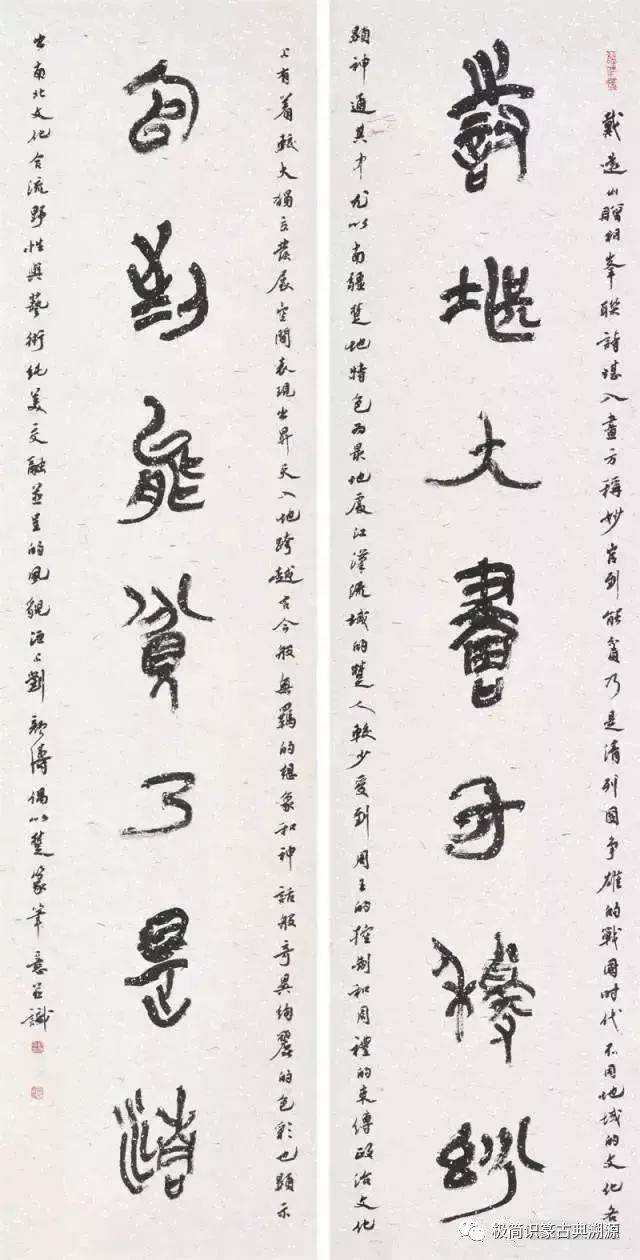 戴遠山贈桐峯聯詩堪入畫方稱妙官到能貧乃是清列國爭雄的戰國時代不同地域的文化各
詩堪入畫方稱妙
顯神通其中尤以南疆楚地特色為最地處江漢流域的楚人較少受到周王的控制和周禮的束縛政治文化
上有着較大獨立發展空間表現出昇天入地跨越古今般無羈的想象和神話般奇異絢麗的色彩也顯示
官到能貧乃是清
出南北文化合流野性與藝術純美交融並呈的風貌洹上劉顏濤偶以楚篆筆意并識
极简识篆古典溯源